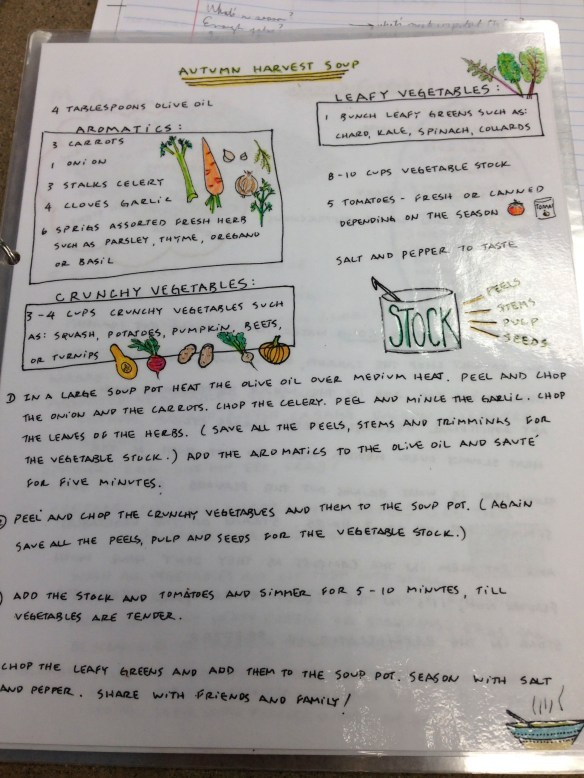 What's in season?
AUTUMN HARVEST SOUP
4 TABLESPOONS OLIVE OIL
AROMATICS:
3 CARROTS
1 ONION
3 STALKS CELERY
4 CLOVES GARLIC
6 SPRIGS ASSORTED FRESH HERB
SUCH AS PARSLEY, THYME, OREGANO
OR BASIL
CRUNCHY VEGETABLES:
3-4 CUPS CRUNCHY VEGETABLES SUCH
AS: SQUASH, POTATOES, PUMPKIN, BEETS,
OR TURNIPS
LEAFY VEGETABLES:
1 BUNCH LEAFY GREENS SUCH AS:
CHARD, KALE, SPINACH, COLLARDS
8-10 CUPS VEGETABLE STOCK
5 TOMATOES - FRESH OR CANNED
DEPENDING ON THE SEASON
SALT AND PEPPER TO TASTE
STOCK
PEELS
STEMS
PULP
SEEDS
1) IN A LARGE SOUP POT HEAT THE OLIVE OIL OVER MEDIUM HEAT. PEEL AND CHOP
THE ONION AND THE CARROTS. CHOP THE CELERY. PEEL AND MINCE THE GARLIC. CHOP
THE LEAVES OF THE HERBS. (SAVE ALL THE PEELS, STEMS AND TRIMMINKS FOR
THE VEGETABLE STOCK.) ADD THE AROMATICS TO THE OLIVE OIL AND SAUTÉ
FOR FIVE MINUTES.
PEEL AND CHOP THE CRUNCHY VEGETABLES AND THEM TO THE SOUP POT. (AGAIN
SAVE ALL THE PEELS, PULP AND SEEDS FOR THE VEGETABLE STOCK.)
) ADD THE STOCK AND TOMATOES AND SIMMER FOR 5-10 MINUTES, TILL
VEGETABLES ARE TENDER.
CHOP THE LEAFY GREENS AND ADD THEM TO THE SOUP POT. SEASON WITH SALT
AND PEPPER. SHARE WITH FRIENDS AND FAMILY!